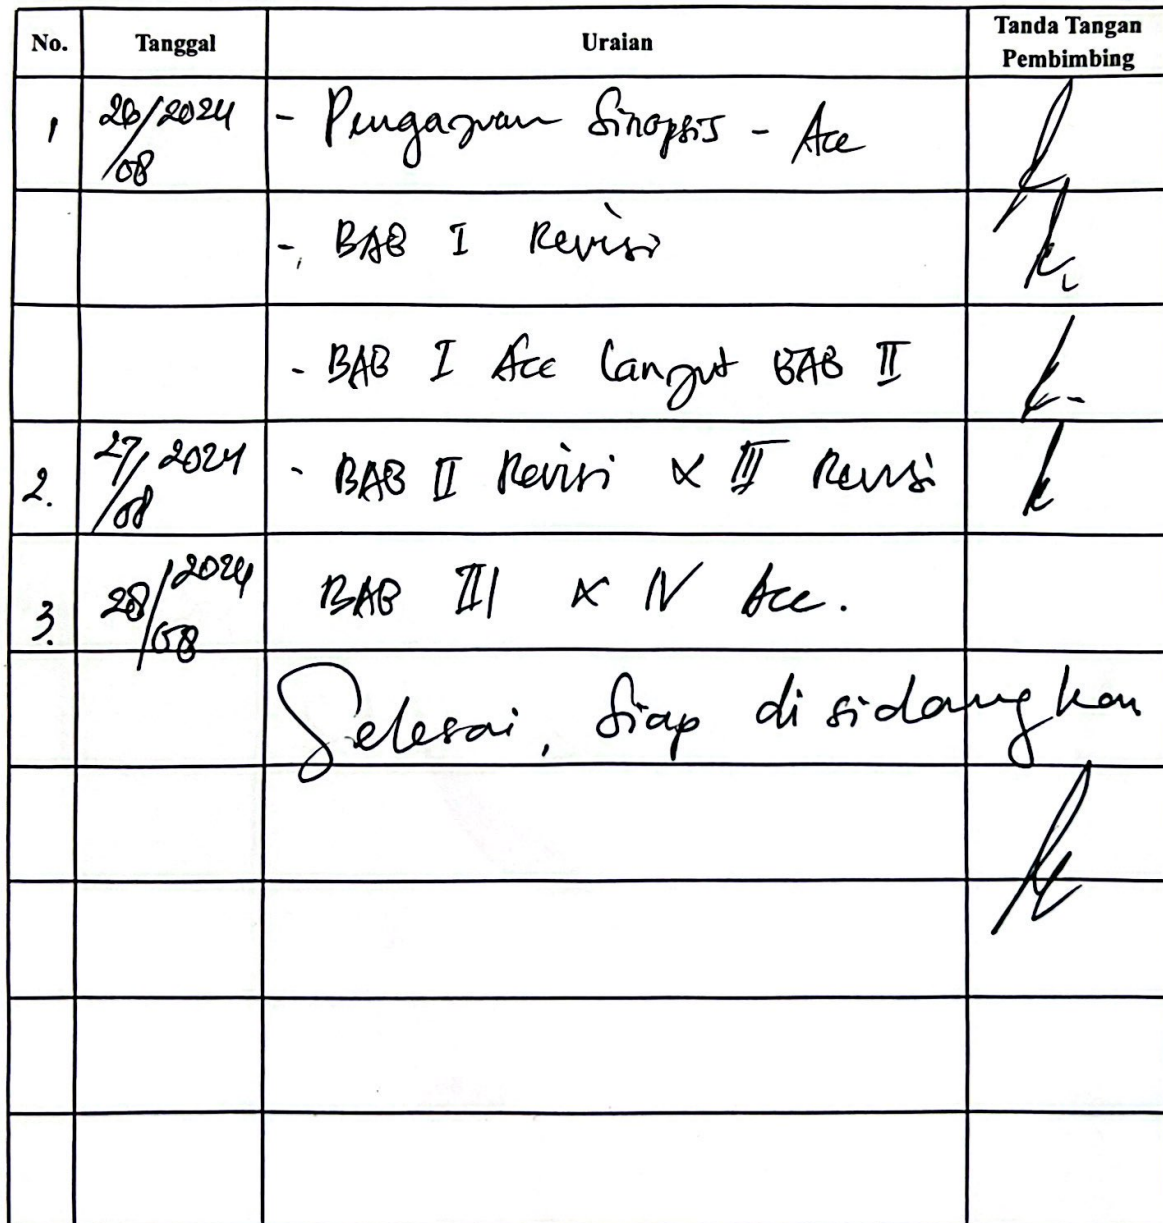 No. Tanggal Uraian Tanda Tangan Pembimbing
1 26/08 2024 - Pengajuan Sinopsis - Acc
- BAB I Revisi
- BAB I Acc lanjut BAB II
2. 27/08 2024 - BAB II Revisi & III Revisi
3. 28/08 2024 BAB III & IV Acc.
Selesai, Siap di sidangkan